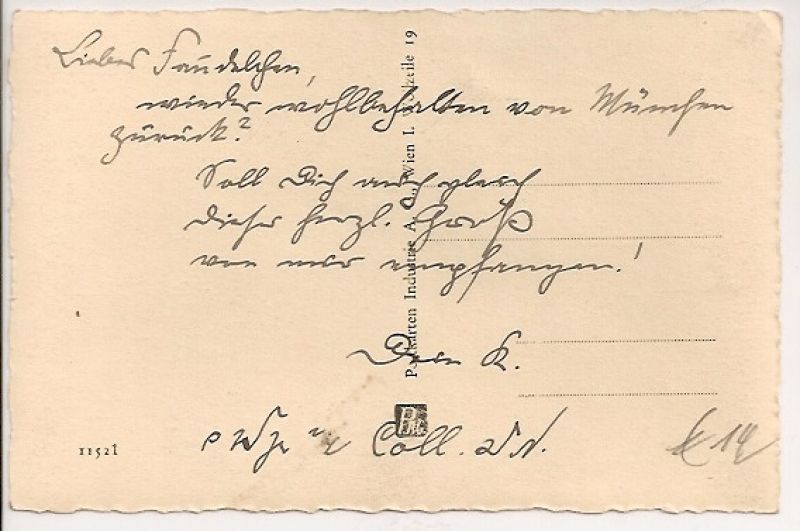 Liebes Faudelchen,
wieder wohlbehalten von München
zurück?
Soll Dich auch gleich
dieser herzl. Gruß
von mir empfangen!
Dein K.
Coll.
Postkarten Industrie A. G., Wien I. zeile 19
11521